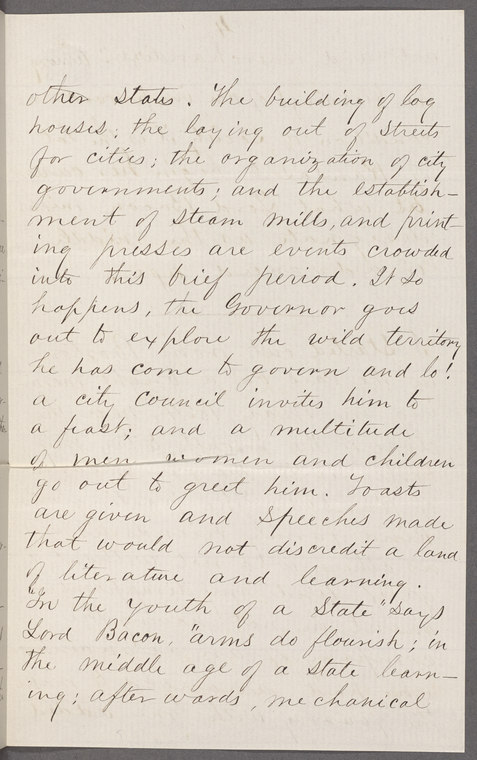 other states. The building of log
houses; the laying out of streets
for cities; the organization of city
governments; and the establish-
ment of steam mills, and print-
ing presses are events crowded
into this brief period. It so
happens, the Governor goes
out to explore the wild territory
he has come to govern and lo!
a city council invites him to
a feast; and a multitude
of men women and children
go out to greet him. Toasts
are given and speeches made
that would not discredit a land
of literature and learning.
"In the youth of a State" says
Lord Bacon, "arms do flourish; in
the middle age of a state learn-
ing; after wards, mechanical